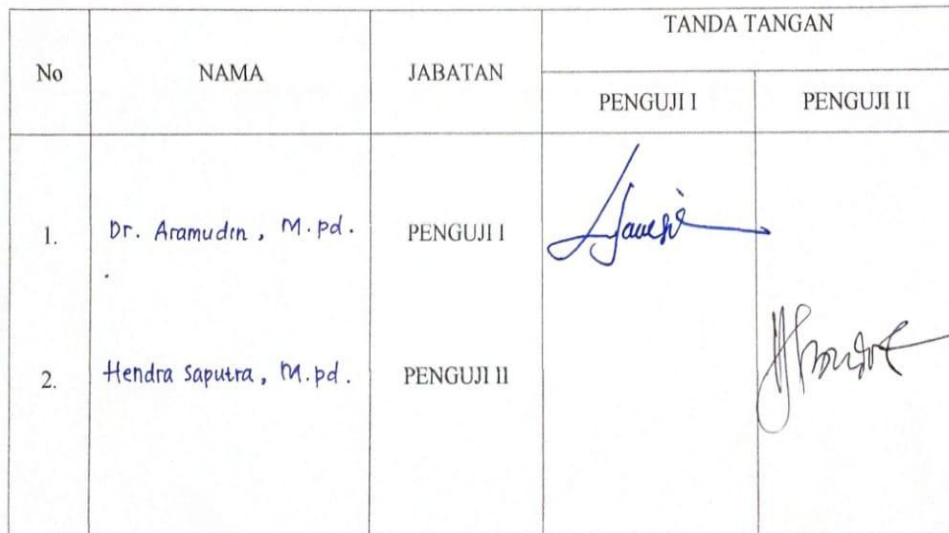 No NAMA JABATAN TANDA TANGAN
PENGUJI I PENGUJI II
1. Dr. Aramudin, M.pd. PENGUJI I
2. Hendra Saputra, M.pd. PENGUJI II